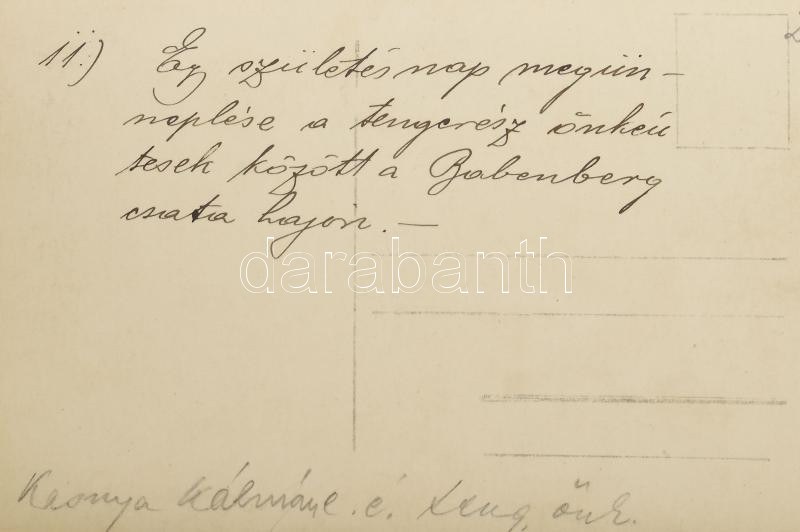 11.) Egy születésnap megün-
neplése a tengerész önkén
tesek között a Babenberg
csata hajón. —
darabanth
Kálmáné. é. önk.